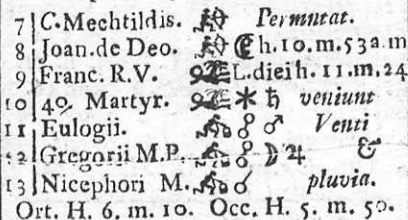 7 C. Mechtildis. Permutat.
8 Joan. de Deo. ☾ h. 10. m. 53 a. m
9 Franc. R. V. L. diei h. 11. m. 24
10 40. Martyr. ⚹ ♄ veniunt
11 Eulogii. ☍ ♂ Venti
12 Gregorii M. P. ☍ ☽ ♃ &
13 Nicephori M. ☌ pluvia.
Ort. H. 6. m. 10. Occ. H. 5. m. 50.